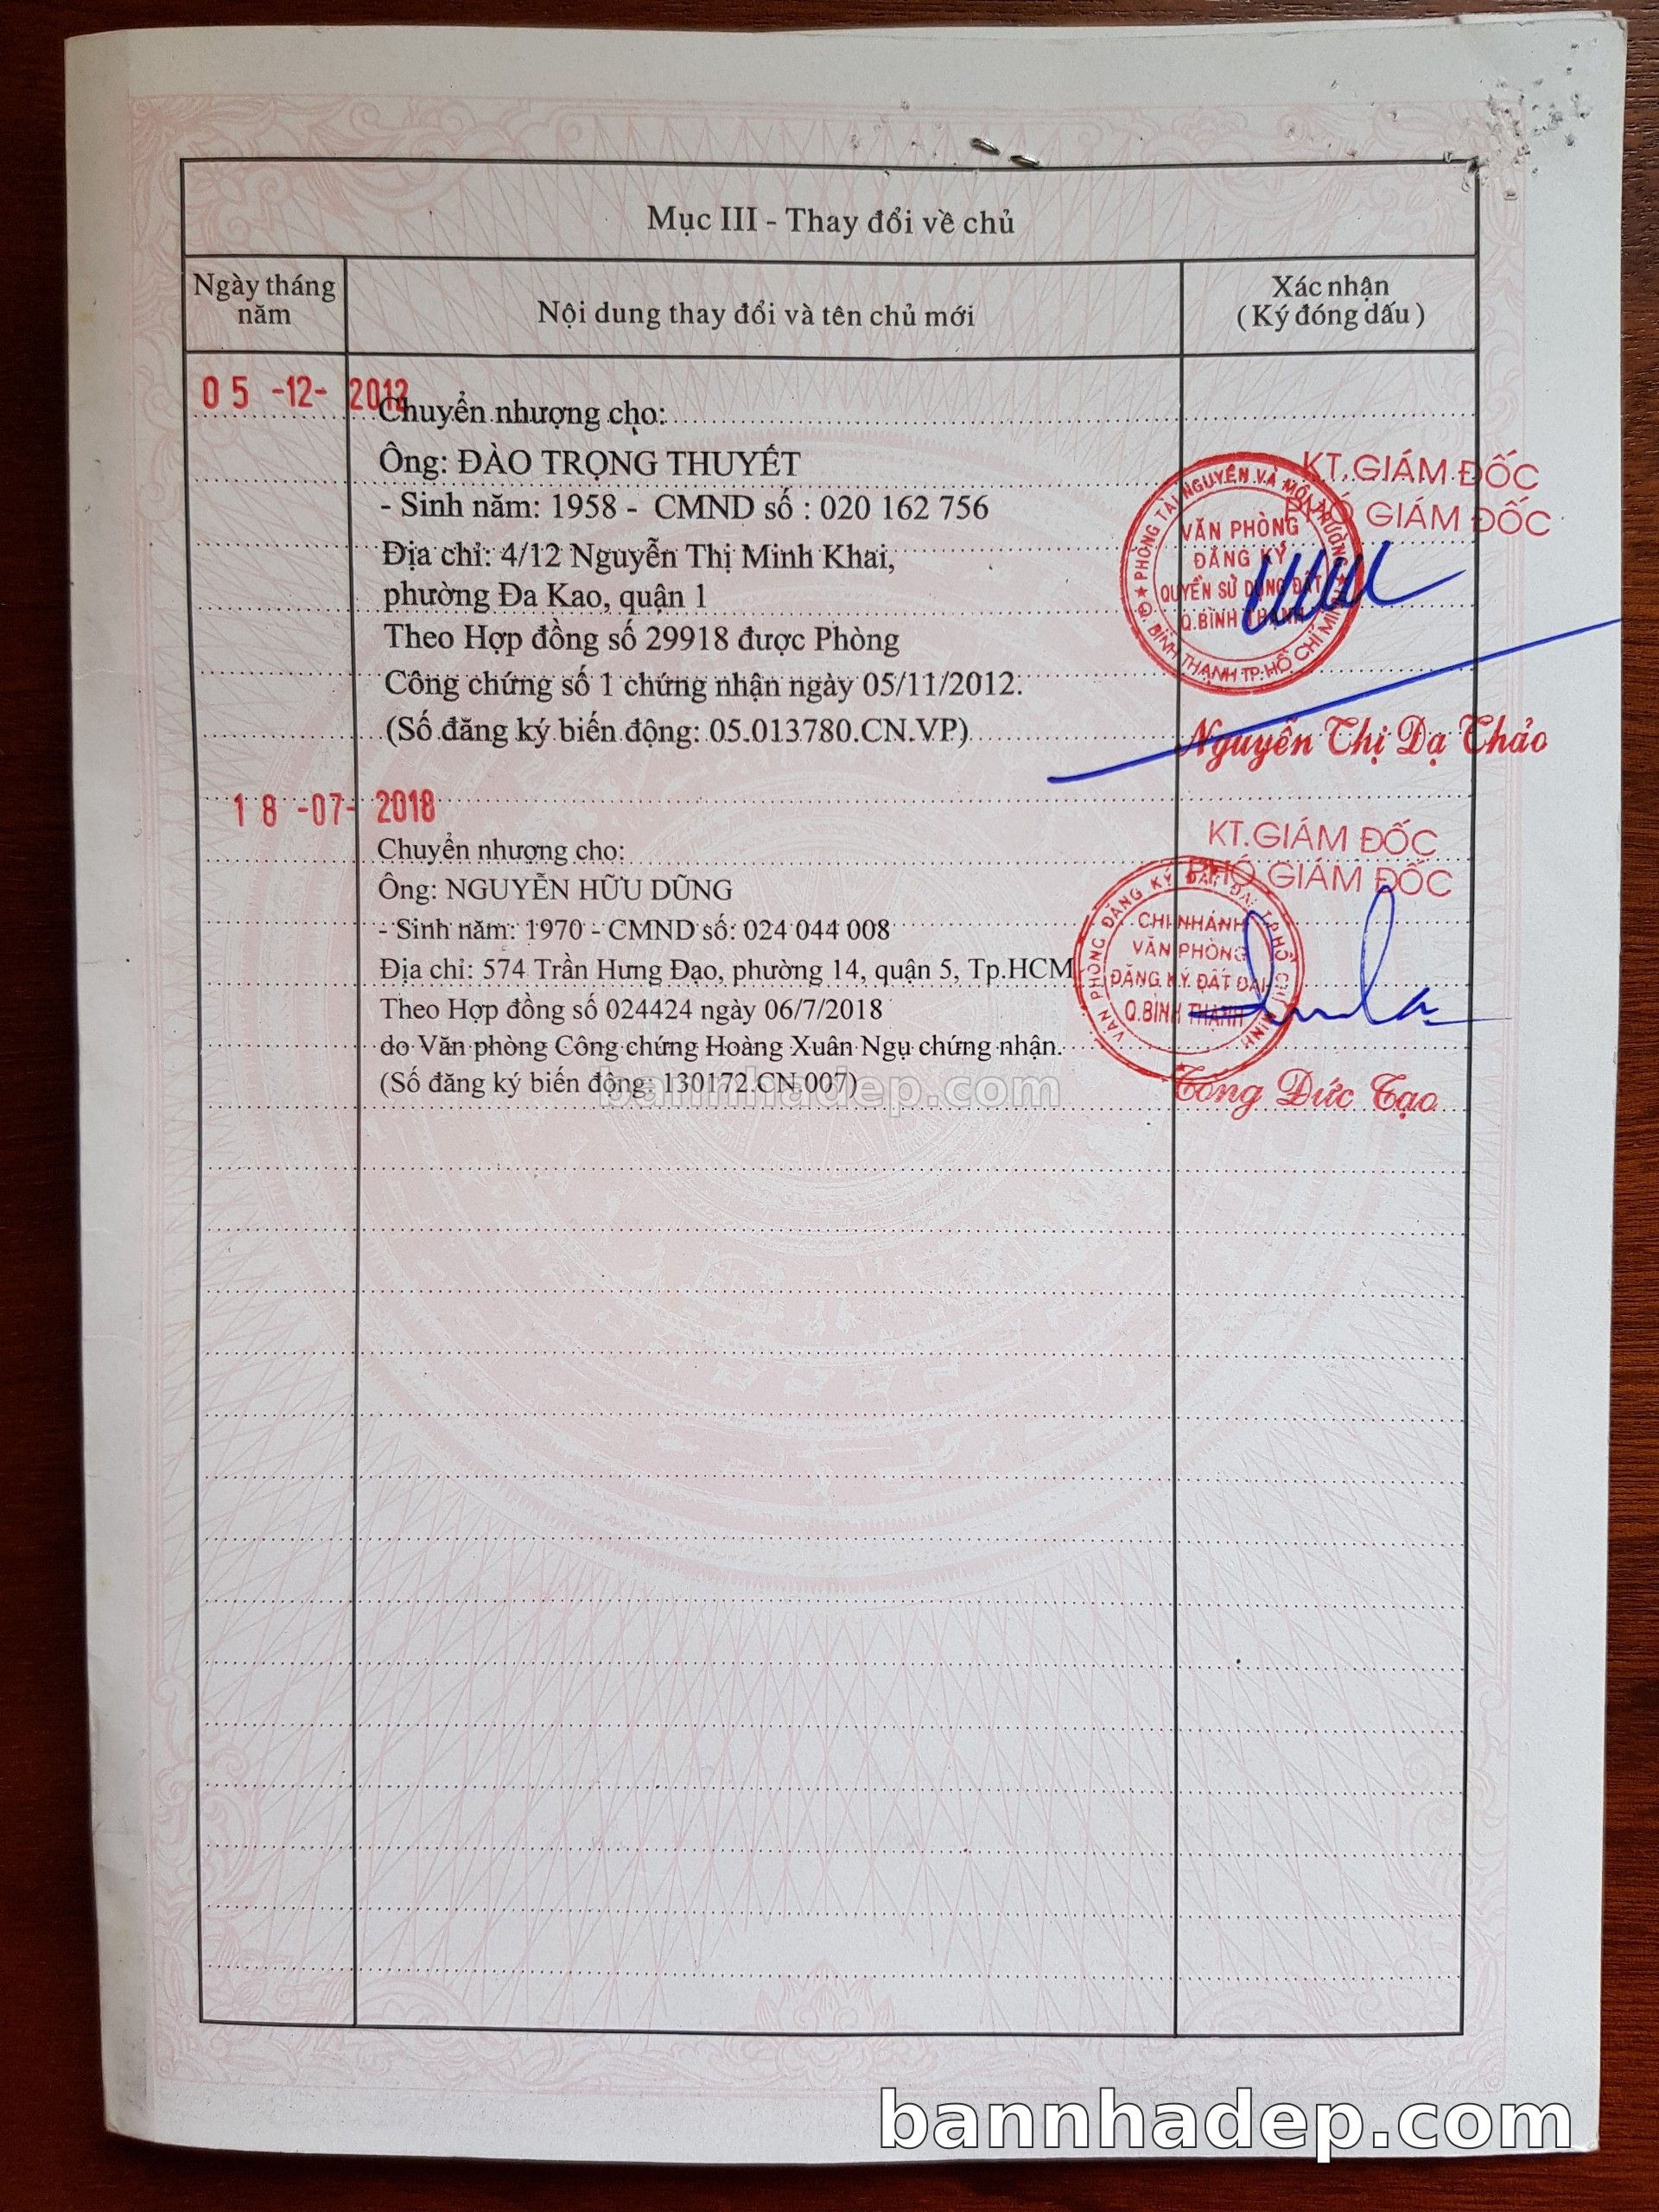 Mục III - Thay đổi về chủ
Ngày tháng năm
Nội dung thay đổi và tên chủ mới
Xác nhận
( Ký đóng dấu )
05 -12- 2012
Chuyển nhượng cho:
Ông: ĐÀO TRỌNG THUYẾT
- Sinh năm: 1958 - CMND số : 020 162 756
Địa chỉ: 4/12 Nguyễn Thị Minh Khai,
phường Đa Kao, quận 1
Theo Hợp đồng số 29918 được Phòng
Công chứng số 1 chứng nhận ngày 05/11/2012.
(Số đăng ký biến động: 05.013780.CN.VP)
KT.GIÁM ĐỐC
PHÓ GIÁM ĐỐC
PHÒNG TÀI NGUYÊN VÀ MÔI TRƯỜNG
Q. BÌNH THẠNH TP.HỒ CHÍ MINH
VĂN PHÒNG
ĐĂNG KÝ
QUYỀN SỬ DỤNG ĐẤT
Q.BÌNH THẠNH
Nguyễn Thị Dạ Thảo
18 -07- 2018
Chuyển nhượng cho:
Ông: NGUYỄN HỮU DŨNG
- Sinh năm: 1970 - CMND số: 024 044 008
Địa chỉ: 574 Trần Hưng Đạo, phường 14, quận 5, Tp.HCM
Theo Hợp đồng số 024424 ngày 06/7/2018
do Văn phòng Công chứng Hoàng Xuân Ngụ chứng nhận.
(Số đăng ký biến động: 130172.CN.007)
KT.GIÁM ĐỐC
PHÓ GIÁM ĐỐC
VĂN PHÒNG ĐĂNG KÝ ĐẤT ĐAI TP.HỒ CHÍ MINH
CHI NHÁNH
VĂN PHÒNG
ĐĂNG KÝ ĐẤT ĐAI
Q.BÌNH THẠNH
Tống Đức Tạo
bannhadep.com
bannhadep.com